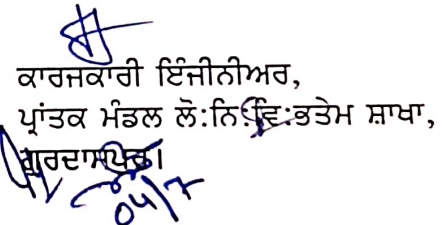 ਕਾਰਜਕਾਰੀ ਇੰਜੀਨੀਅਰ,
ਪ੍ਰਾਂਤਕ ਮੰਡਲ ਲੋ:ਨਿ:ਵਿ:ਭਤੇਮ ਸ਼ਾਖਾ,
ਗੁਰਦਾਸਪੁਰ।
04/7